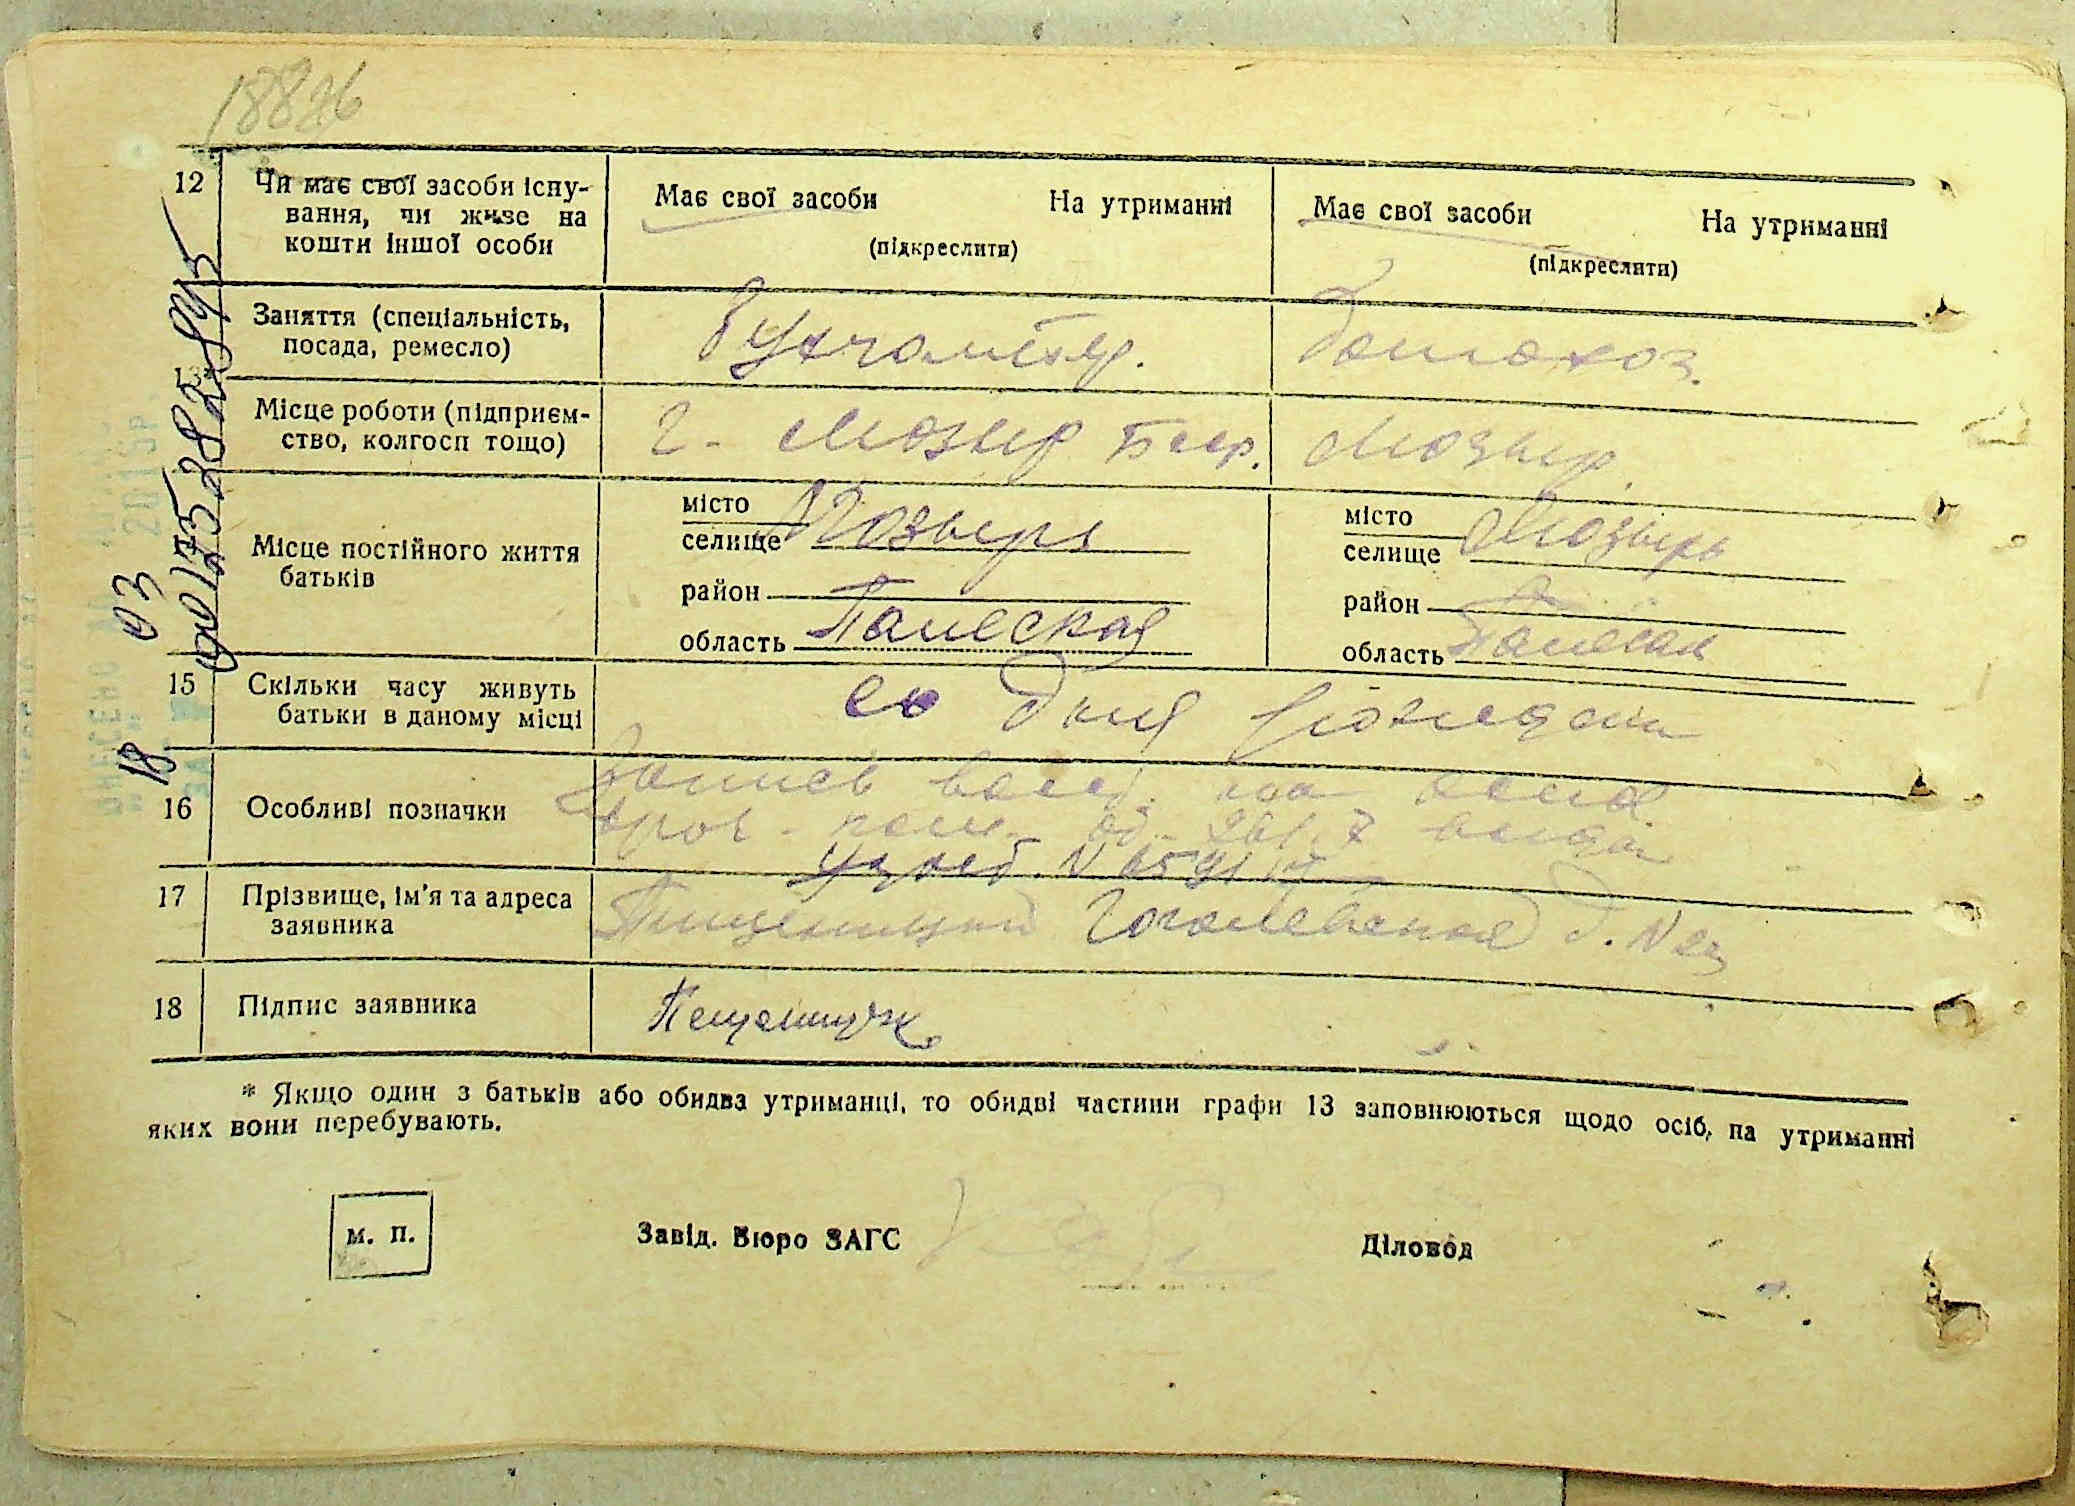 18826
12 Чи має свої засоби існу-
вання, чи живе на
кошти іншої особи
Має свої засоби На утриманні
(підкреслити)
Має свої засоби На утриманні
(підкреслити)
13*
Заняття (спеціальність,
посада, ремесло)
Бухгалтер.
домохоз.
Місце роботи (підприєм-
ство, колгосп тощо)
г. Мозырь Бсср.
Мозырь
Місце постійного життя
батьків
місто
селище Мозырь
район
область Полеская
місто
селище Мозырь
район
область Полеская
15 Скільки часу живуть
батьки в даному місці
со дня рождения
16 Особливі позначки
Запись на
17 Прізвище, ім'я та адреса
заявника
Гоголевская д. N
18 Підпис заявника
* Якщо один з батьків або обидва утриманці, то обидві частини графи 13 заповнюються щодо осіб, на утриманні
яких вони перебувають.
м. п.
Завід. Бюро ЗАГС
Діловод